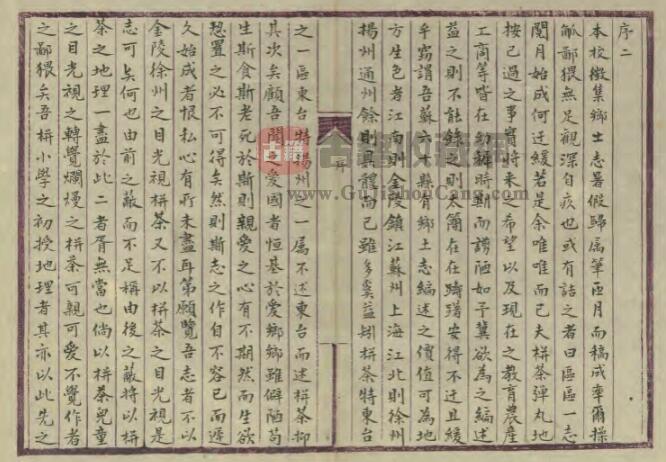 序二
本校徵集鄉土志暑假歸属筆匝月而稿成率爾操
觚鄙猥無足觀深自疚也或有詰之者曰區區一志
閱月始成何迂緩若是余唯唯而已夫栟茶彈丸地
按已過之事實將來之希望以及現在之教育農產
工商等皆在幼穉時期而譾陋如予冀欲為之編述
益之則不能 之則太簡在在 安得不迂且緩
乎竊謂吾蘇六十縣有鄉土志編述之價值可為地
方生色者江南則金陵鎮江蘇州上海江北則徐州
揚州通州餘則具體而已雖多奚益矧栟茶特東台
之一區東台特揚州之一属不述東台而述栟茶抑
其次矣顧吾聞之愛國者恒基於愛鄉鄉雖僻陋茍
生斯食斯老死於斯則親愛之心有不期然而生欲
恝置之必不可得矣然則斯志之作自不容已而遲
久始成者恨私心有所未盡耳第願覽吾志者不以
金陵徐州之目光視栟茶又不以栟茶之目光視是
志可矣何也由前之蔽而不足稱由後之蔽將以栟
茶之地理一盡於此二者胥無當也倘以栟茶兒童
之目光視之轉覺爛熳之栟茶可親可愛不覺作者
之鄙猥矣吾栟小學之初授地理者其亦以此先之
古籍 古籍收藏网
www.GuJiShouCang.com